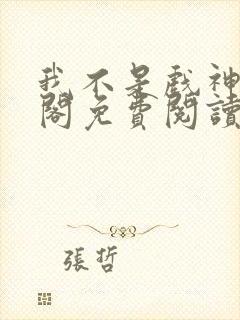 我不是戲神
閣免費閱讀
張哲